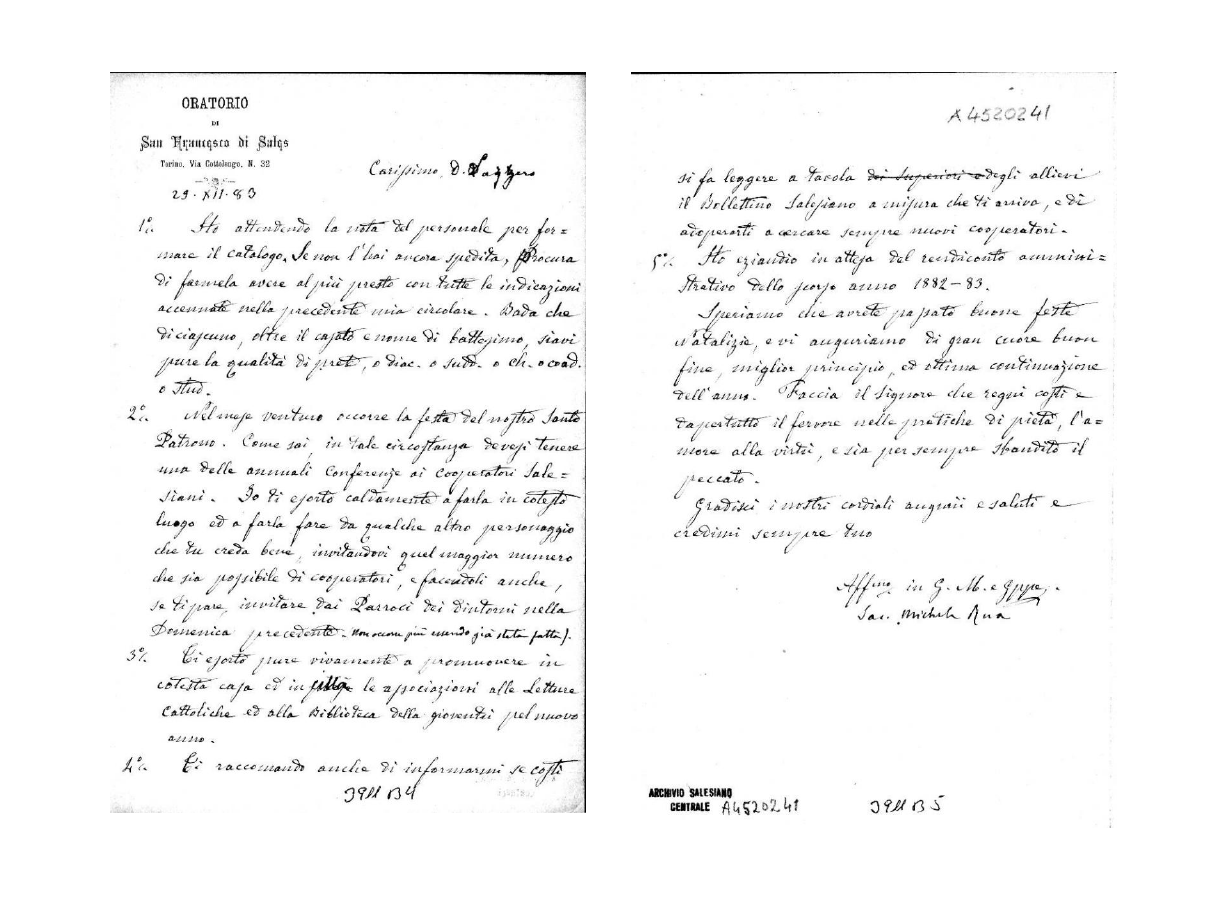 ORATORIO
DI
San Francesco di Sales
Torino, Via Cottolengo, N. 32
29-XII-83
Carissimo D. Lazzero
1°/. Sto attendendo la nota del personale per for=
mare il catalogo. Se non l'hai ancora spedita, Procura
di farmela avere al più presto con tutte le indicazioni
accennate nella precedente mia circolare. Bada che
di ciascuno, oltre il casato e nome di battesimo, siavi
pure la qualità di pret, o diac. o sudd. o ch. o coad.
o stud.
2°/. Nel mese venturo occorre la festa del nostro Santo
Patrono. Come sai, in tale circostanza devesi tenere
una delle annuali Conferenze ai Cooperatori Sale=
siani. Io ti esorto caldamente a farla in cotesto
luogo ed a farla fare da qualche altro personaggio
che tu creda bene, invitandovi quel maggior numero
che sia possibile di cooperatori, e facendoli anche,
se ti pare, invitare dai Parroci dei dintorni nella
Domenica precedente. Non occorre più essendo già stata fatta).
3°/. Ti esorto pure vivamente a promuovere in
cotesta casa ed in città le associazioni alle Letture
Cattoliche ed alla Biblioteca della gioventù pel nuovo
anno.
4°/. Ti raccomando anche di informarmi se costì
3911 B4
A4520241
si fa leggere a tavola dei Superiori o degli allievi
il Bollettino Salesiano a misura che ti arriva, e di
adoperarti a cercare sempre nuovi cooperatori.
5°/. Sto eziandio in attesa del rendiconto ammini=
strativo dello scorso anno 1882-83.
Speriamo che avrete passato buone feste
Natalizie, e vi auguriamo di gran cuore buon
fine, miglior principio, ed ottima continuazione
dell'anno. Faccia il Signore che regni costì e
dapertutto il fervore nelle pratiche di pietà, l'a=
more alla virtù, e sia per sempre sbandito il
peccato.
Gradisci i nostri cordiali augurii e saluti e
credimi sempre tuo
Affmo in G. M. e Gppe.
Sac. Michele Rua
ARCHIVIO SALESIANO
CENTRALE A4520241
3911 B5